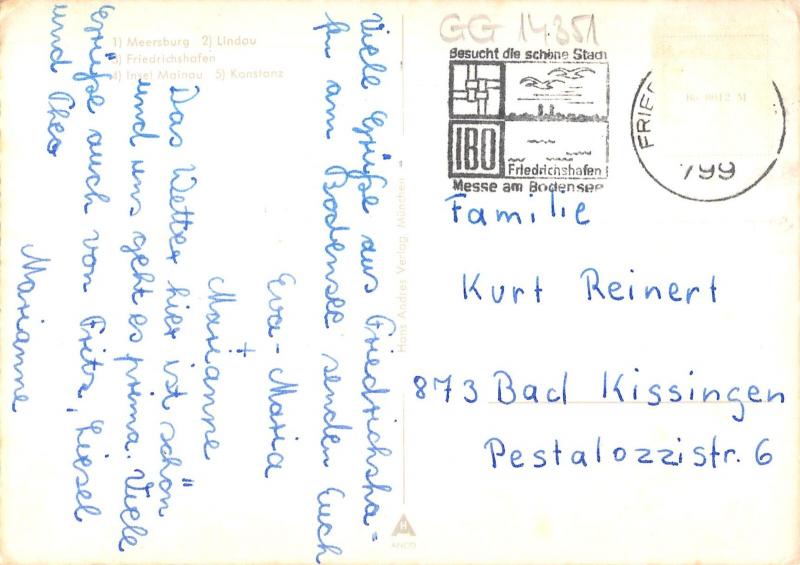 1) Meersburg 2) Lindau
3) Friedrichshafen
4) Insel Mainau 5) Konstanz
Viele Grüße aus Friedrichsha-
fen am Bodensee senden Euch
Eva-Maria
+
Marianne
Das Wetter hier ist schön
und uns geht es prima. Viele
Grüße auch von Fritz, Liesel
und Theo
Marianne
Hans Andres Verlag, München
ANCO
GG 14351
Besucht die schöne Stadt
IBO
Friedrichshafen
Messe am Bodensee
FRIED
799
Familie
Kurt Reinert
873 Bad Kissingen
Pestalozzistr. 6